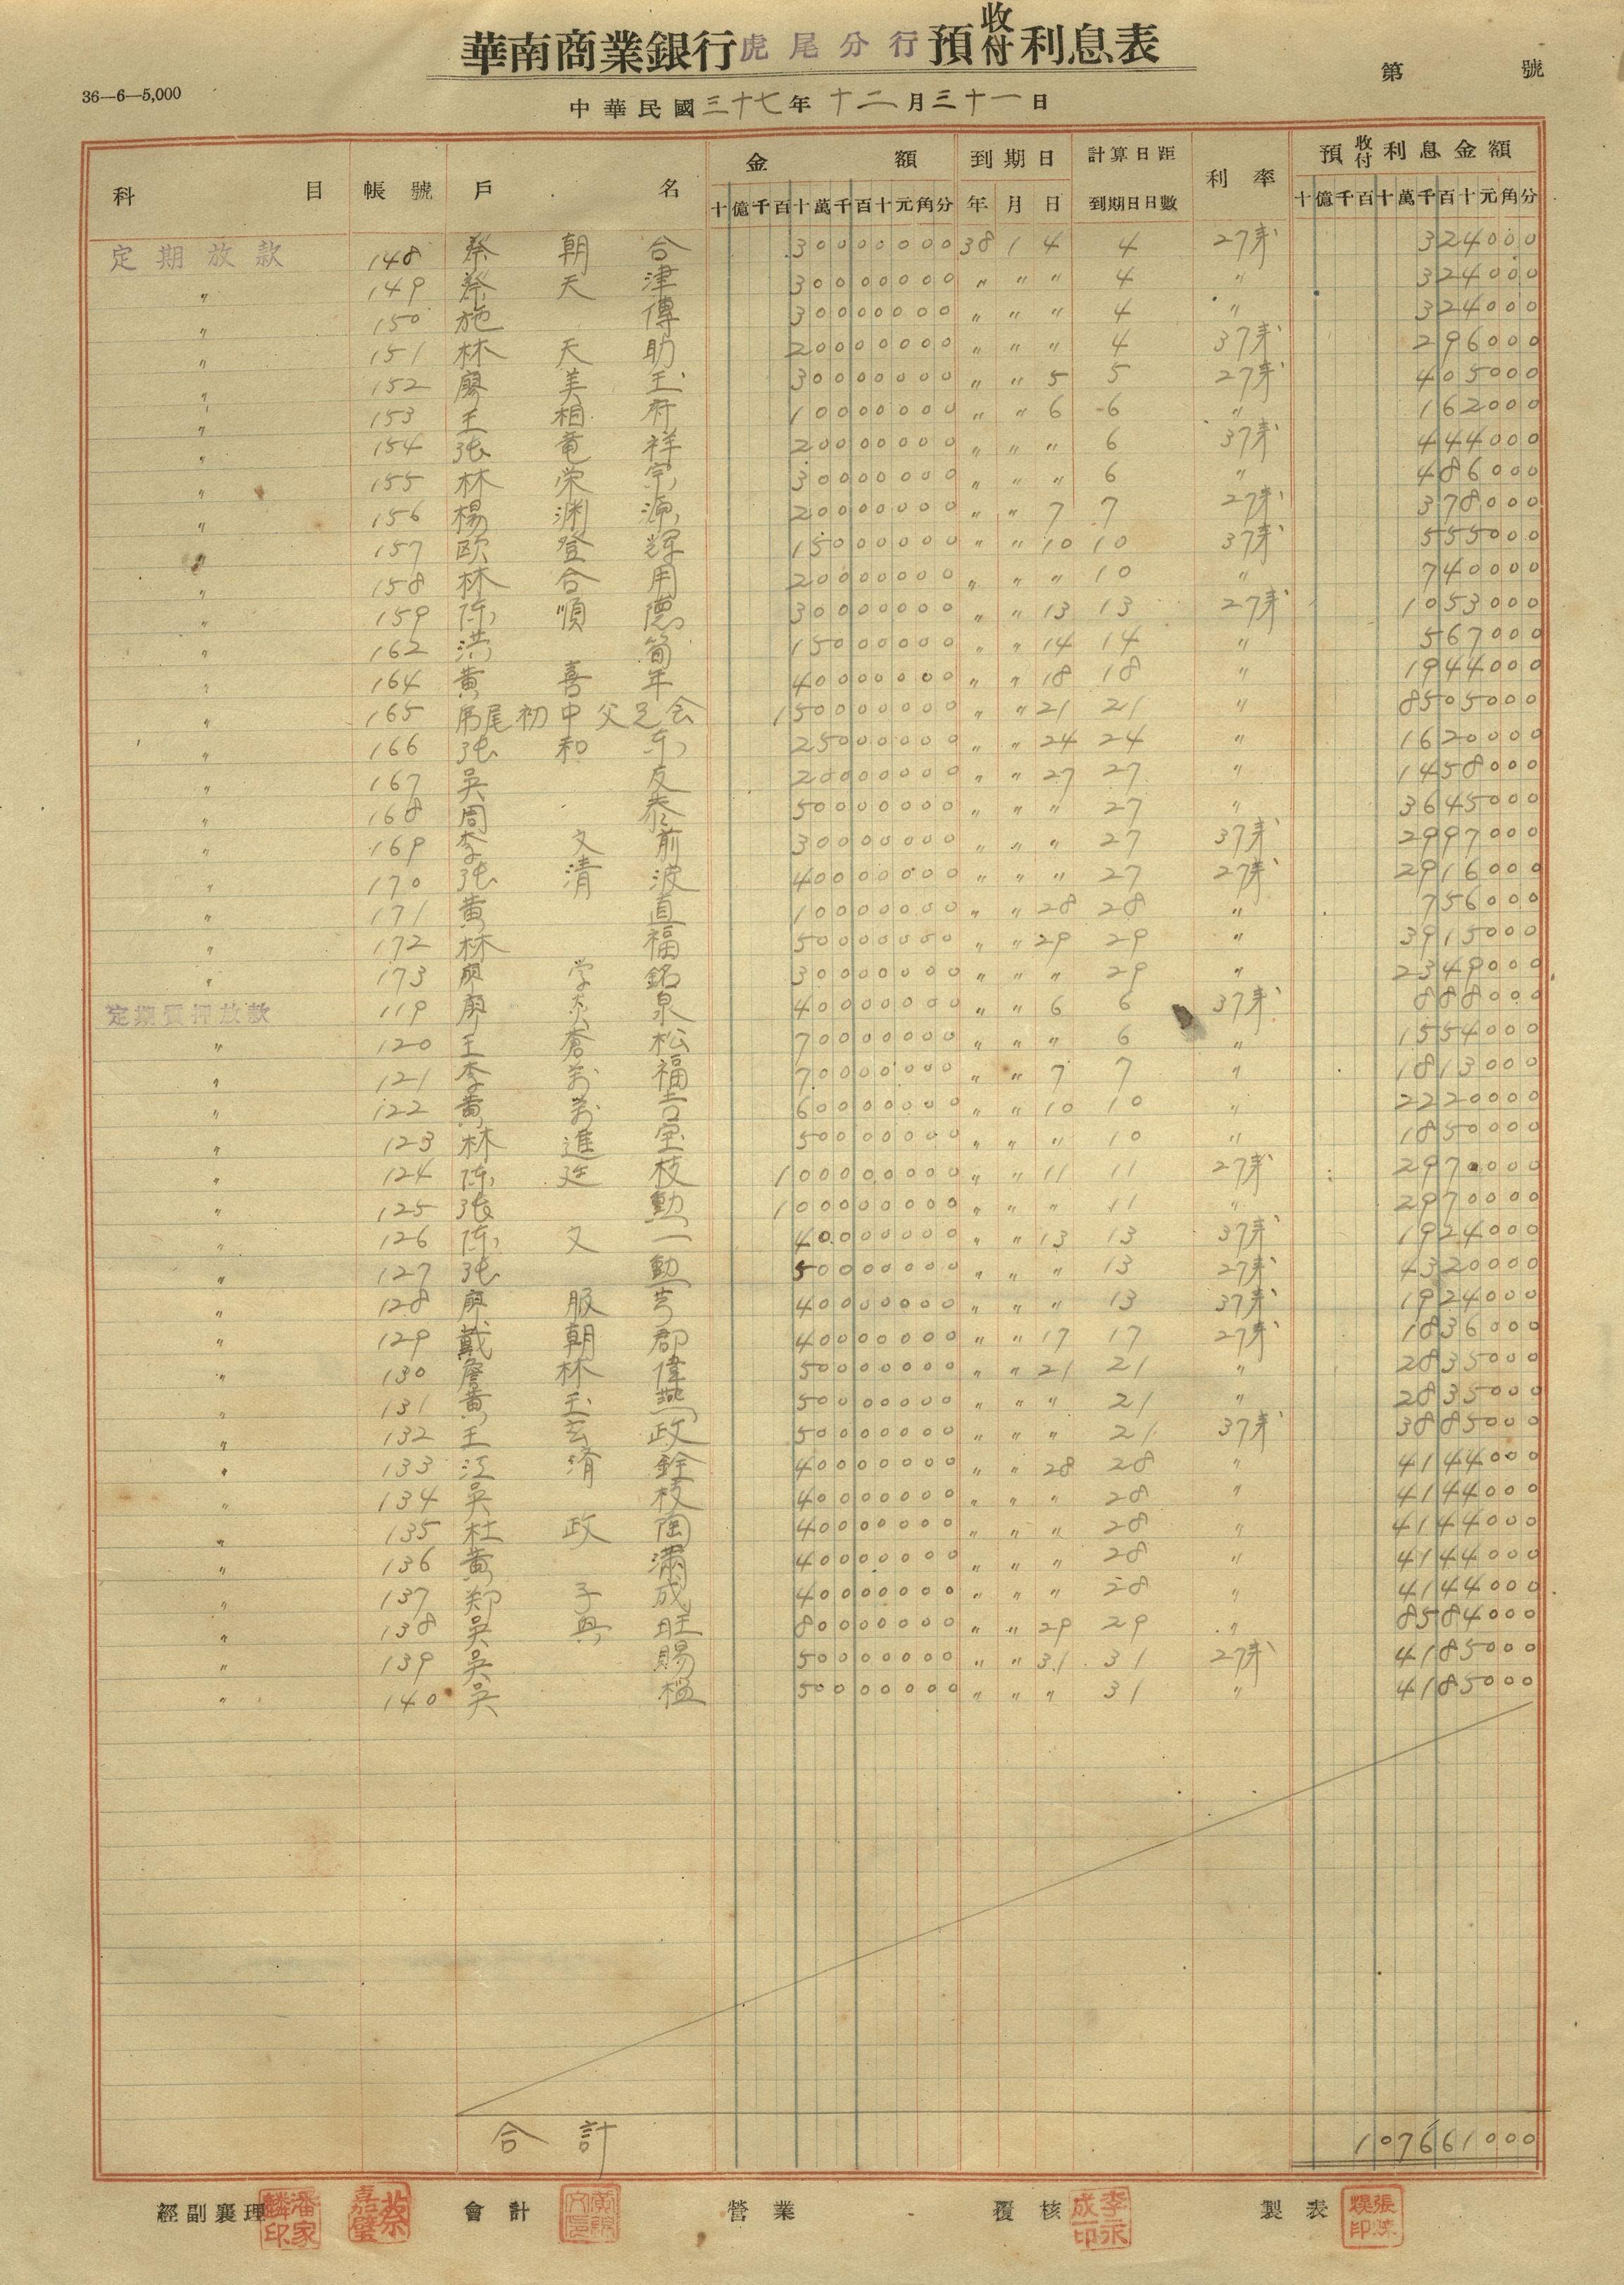 華南商業銀行虎尾分行預收付利息表
36—6—5,000
第 號
中華民國三十七年十二月三十一日
科 目 帳號 戶 名 金 額 到期日 計算日距到期日日數 利率 預收付利息金額
十億千百十萬千百十元角分 年 月 日 十億千百十萬千百十元角分
定期放款 148 蔡朝合 30000000 38 1 4 4 27 324000
〃 149 蔡天津 30000000 〃 〃 〃 4 〃 324000
〃 150 施傳 30000000 〃 〃 〃 4 〃 324000
〃 151 林天助 20000000 〃 〃 〃 4 37 296000
〃 152 廖美玉 30000000 〃 〃 5 5 27 405000
〃 153 王相府 10000000 〃 〃 6 6 〃 162000
〃 154 張竜祥 20000000 〃 〃 〃 6 37 444000
〃 155 林荣宗 30000000 〃 〃 〃 6 〃 486000
〃 156 楊渊源 20000000 〃 〃 7 7 27 378000
〃 157 欧登輝 15000000 〃 〃 10 10 37 555000
〃 158 林合用 20000000 〃 〃 〃 10 〃 740000
〃 159 陈順德 30000000 〃 〃 13 13 27 1053000
〃 162 洪 15000000 〃 〃 14 14 〃 567000
〃 164 黃喜年 40000000 〃 〃 18 18 〃 1944000
〃 165 虎尾初中父兄会 150000000 〃 〃 21 21 〃 8505000
〃 166 張和东 25000000 〃 〃 24 24 〃 1620000
〃 167 吳友 20000000 〃 〃 27 27 〃 1458000
〃 168 周泰 50000000 〃 〃 〃 27 〃 3645000
〃 169 李文前 30000000 〃 〃 〃 27 37 2997000
〃 170 張清波 40000000 〃 〃 〃 27 27 2916000
〃 171 黃直 10000000 〃 〃 28 28 〃 756000
〃 172 林福 50000000 〃 〃 29 29 〃 3915000
〃 173 廖学銘 30000000 〃 〃 〃 29 〃 2349000
定期質押放款 119 廖泉 40000000 〃 〃 6 6 37 888000
〃 120 王蒼松 70000000 〃 〃 〃 6 〃 1554000
〃 121 李万福 70000000 〃 〃 7 7 〃 1813000
〃 122 黃万吉 60000000 〃 〃 10 10 〃 2220000
〃 123 林進宝 50000000 〃 〃 〃 10 〃 1850000
〃 124 陈廷枝 100000000 〃 〃 11 11 27 2970000
〃 125 張勳 100000000 〃 〃 〃 11 〃 2970000
〃 126 陈文一 40000000 〃 〃 13 13 37 1924000
〃 127 張勳 50000000 〃 〃 〃 13 27 4320000
〃 128 廖服 40000000 〃 〃 〃 13 37 1924000
〃 129 戴朝郡 40000000 〃 〃 17 17 27 1836000
〃 130 詹林偉 50000000 〃 〃 21 21 〃 2835000
〃 131 黃玉燕 50000000 〃 〃 〃 21 〃 2835000
〃 132 王玄政 50000000 〃 〃 〃 21 37 3885000
〃 133 江清銓 40000000 〃 〃 28 28 〃 4144000
〃 134 吳枝 40000000 〃 〃 〃 28 〃 4144000
〃 135 杜政陶 40000000 〃 〃 〃 28 〃 4144000
〃 136 黃清 40000000 〃 〃 〃 28 〃 4144000
〃 137 郑子成 40000000 〃 〃 〃 28 〃 4144000
〃 138 吳興旺 80000000 〃 〃 29 29 〃 8584000
〃 139 吳賜 50000000 〃 〃 31 31 27 4185000
〃 140 吳 50000000 〃 〃 〃 31 〃 4185000
合計 107661000
經副襄理 潘家麟印 蔡嘉璧 會計 營業 覆核 李永成印 製表